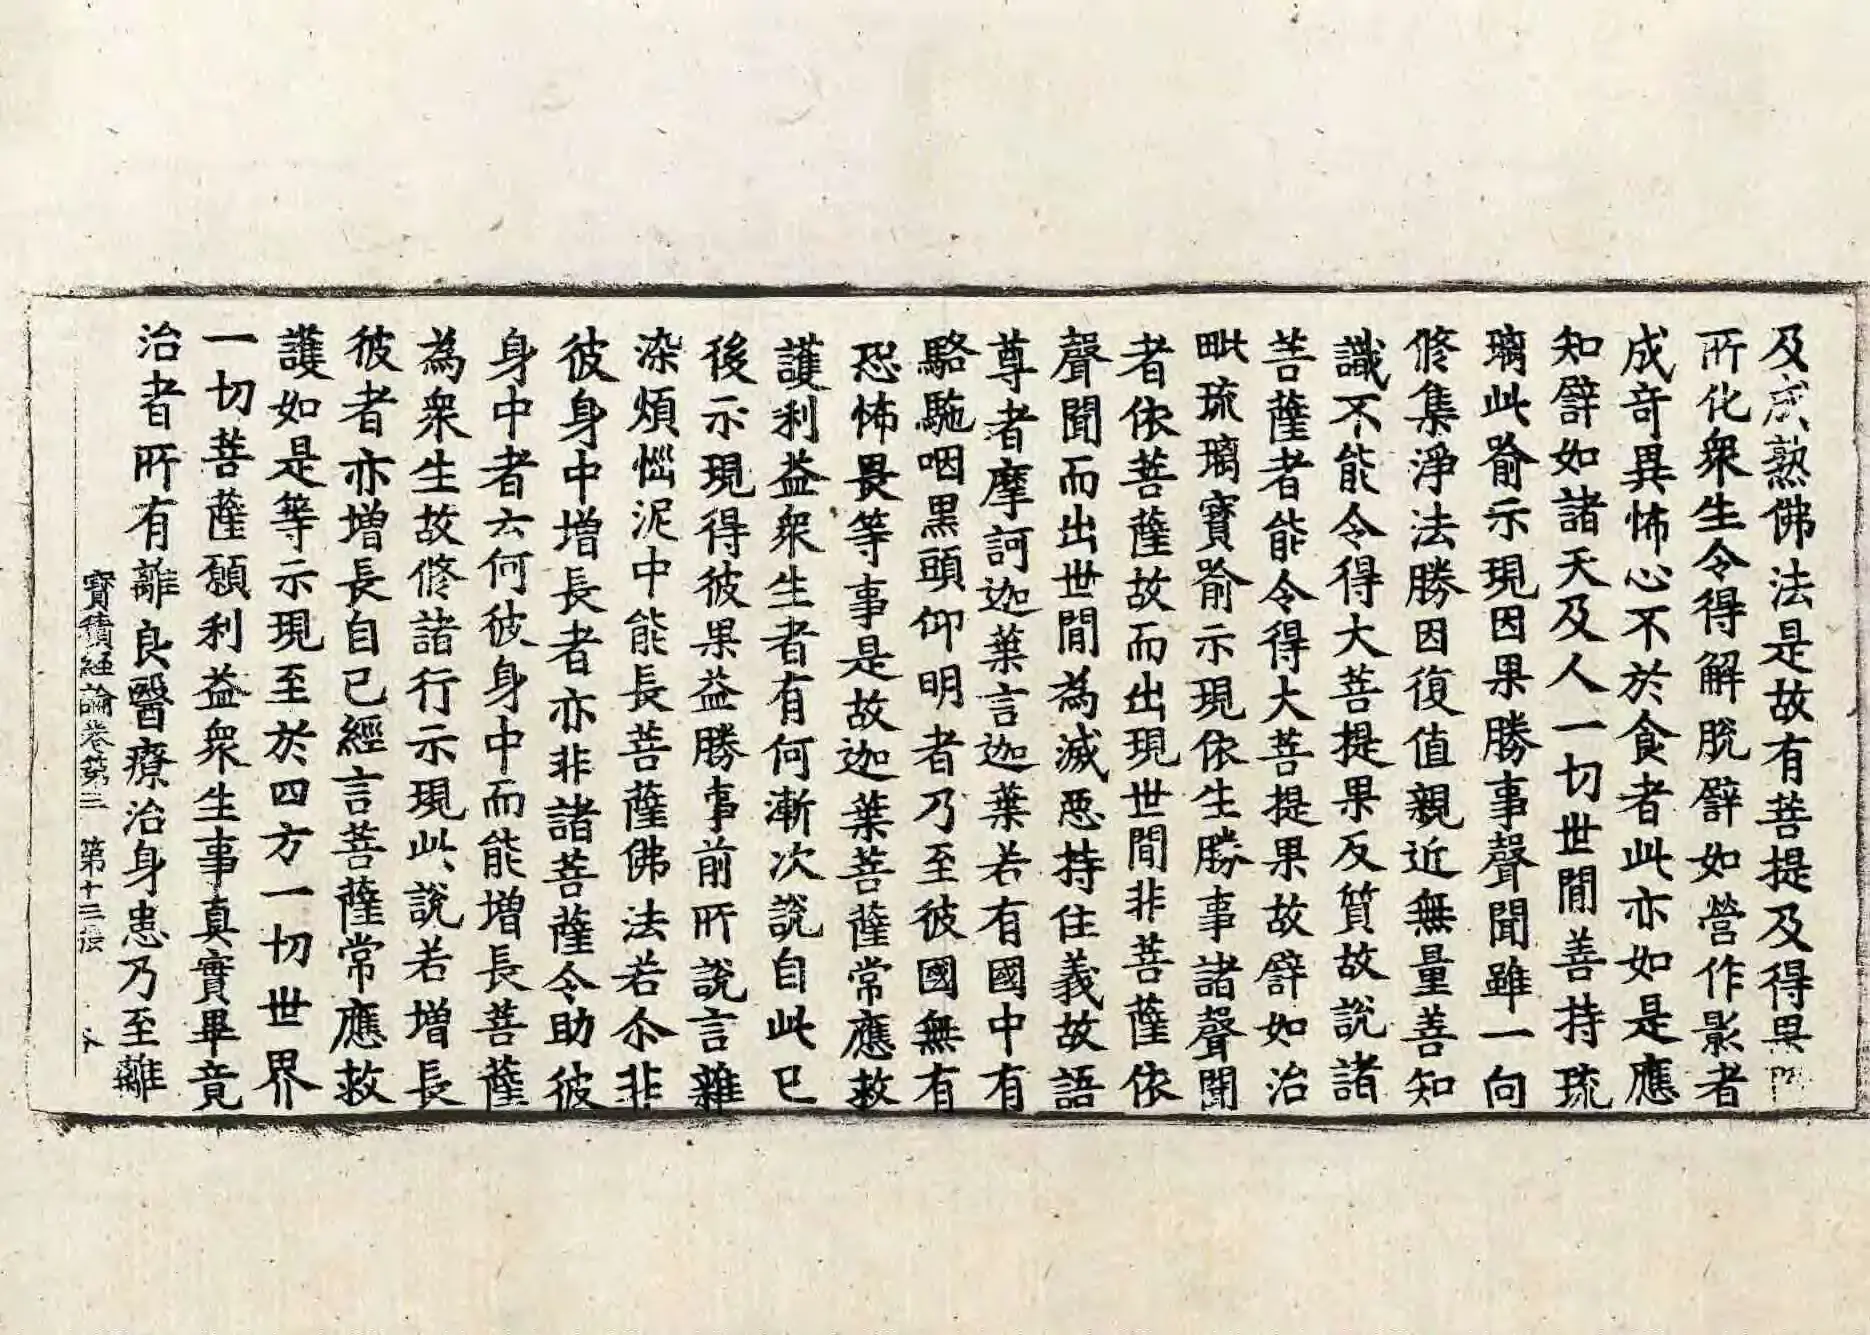 及成熟佛法是故有菩提及得果
所化衆生令得解脫譬如營作影者
成竒異怖心不於食者此亦如是應
知譬如諸天及人一切世間善持琉
璃此喻示現因果勝事聲聞雖一向
修集淨法勝因復值親近無量善知
識不能令得大菩提果反質故說諸
菩薩者能令得大菩提果故譬如治
毗琉璃寶喻示現依生勝事諸聲聞
者依菩薩故而出現世間非菩薩依
聲聞而出世間為滅惡持住義故語
尊者摩訶迦葉言迦葉若有國中有
駱駞咽黑頭仰明者乃至彼國無有
恐怖畏等事是故迦葉菩薩常應救
護利益衆生者有何漸次說自此已
後示現得彼果益勝事前所說言雜
染煩惱泥中能長菩薩佛法若尒非
彼身中增長者亦非諸菩薩令助彼
身中者云何彼身中而能增長菩薩
為衆生故修諸行示現此說若增長
彼者亦增長自已經言菩薩常應救
護如是等示現至於四方一切世界
一切菩薩願利益衆生事真實畢竟
治者所有離良醫療治身患乃至離
寶積經論卷第三 第十三張